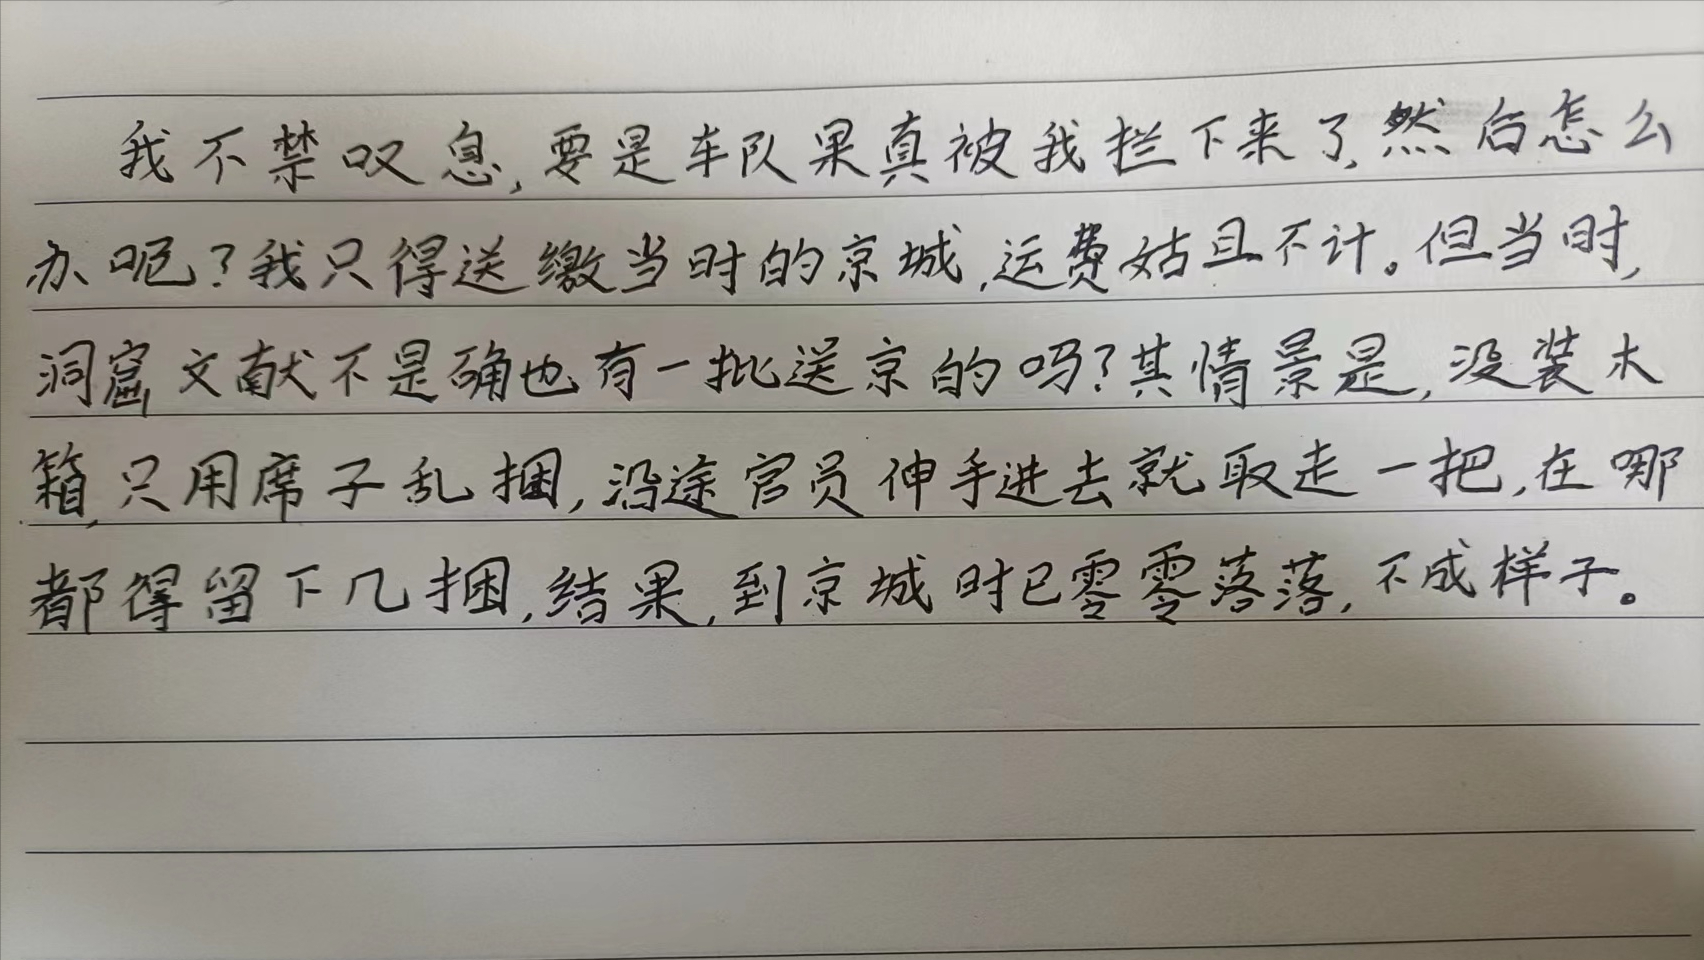 我不禁叹息,要是车队果真被我拦下来了,然后怎么
办呢?我只得送缴当时的京城,运费姑且不计。但当时,
洞窟文献不是确也有一批送京的吗?其情景是,没装木
箱,只用席子乱捆,沿途官员伸手进去就取走一把,在哪
都得留下几捆,结果,到京城时已零零落落,不成样子。